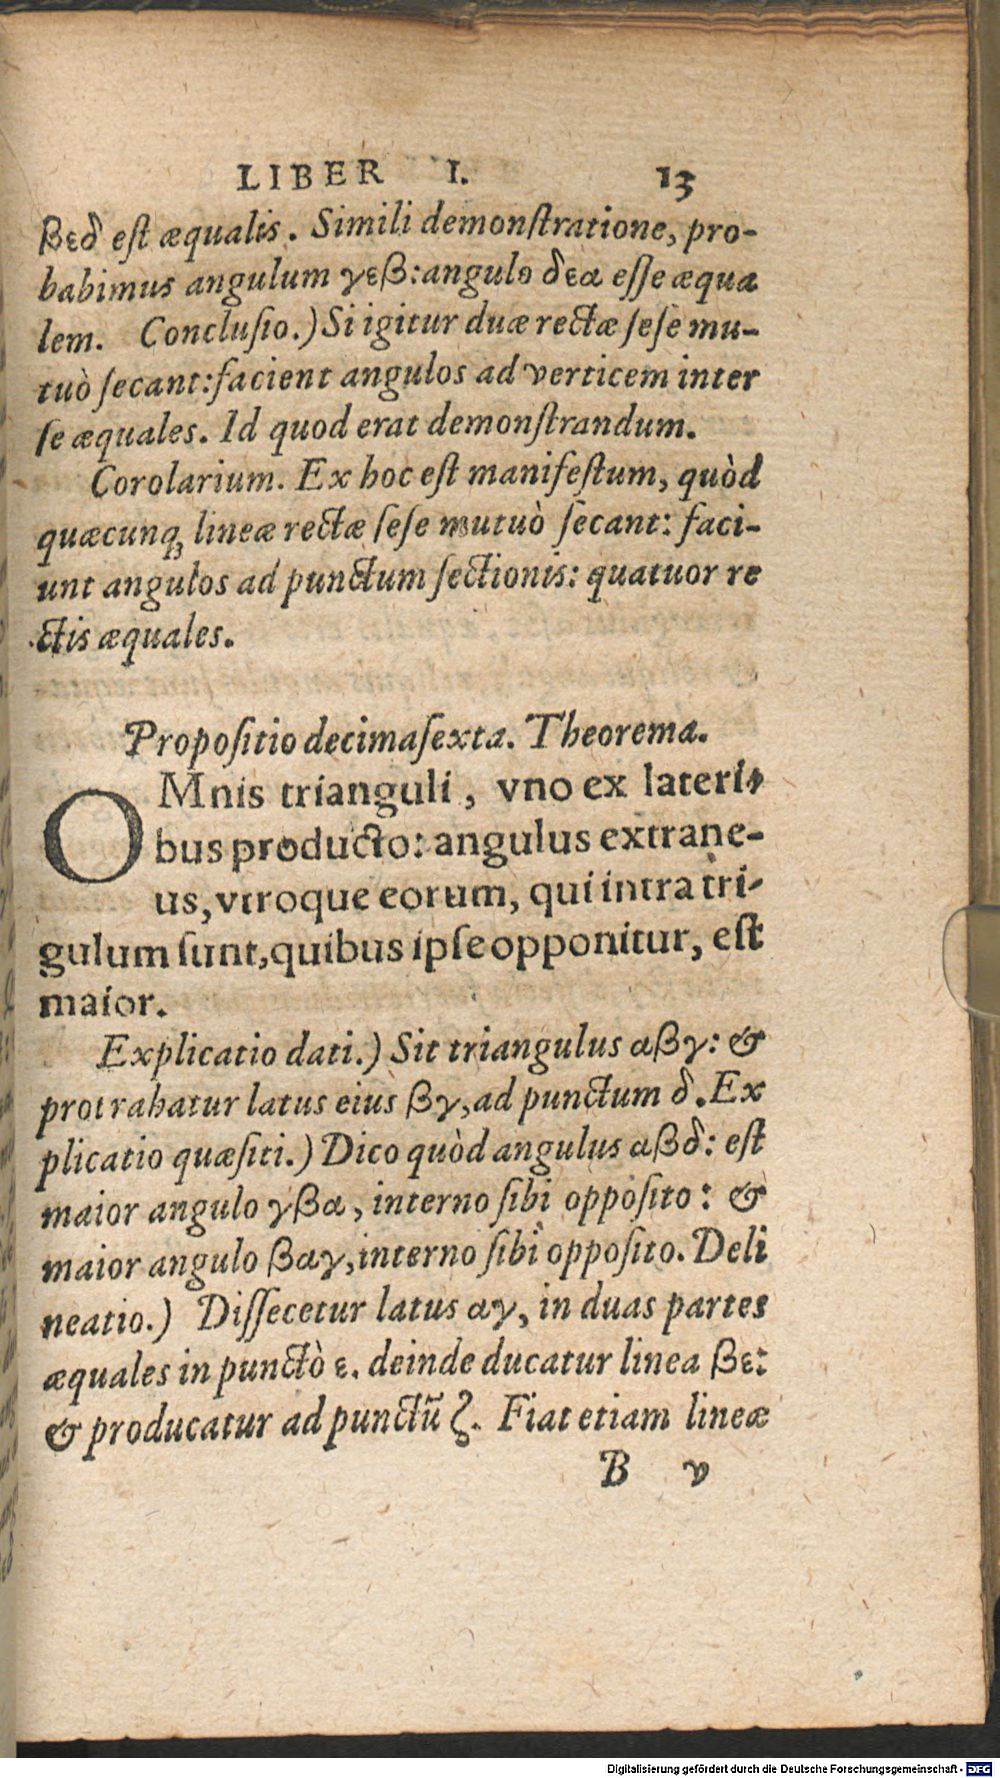 LIBER I. 13
βεδ est æqualis. Simili demonſtratione, pro-
babimus angulum γεβ: angulo δεα eſſe æqua
lem. Concluſio.) Si igitur duæ rectæ ſeſe mu-
tuò ſecant: facient angulos ad verticem inter
ſe æquales. Id quod erat demonſtrandum.
Corolarium. Ex hoc eſt manifeſtum, quòd
quæcunqꝫ lineæ rectæ ſeſe mutuò ſecant: faci-
unt angulos ad punctum ſectionis: quatuor re
ctis æquales.
Propoſitio decimaſexta. Theorema.
OMnis trianguli, vno ex lateri-
bus producto: angulus extrane-
us, vtroque eorum, qui intra tri-
gulum ſunt, quibus ipſe opponitur, eſt
maior.
Explicatio dati.) Sit triangulus αβγ: &
protrahatur latus eius βγ, ad punctum δ. Ex
plicatio quæſiti.) Dico quòd angulus αβδ: eſt
maior angulo γβα, interno ſibi oppoſito: &
maior angulo βαγ, interno ſibi oppoſito. Deli
neatio.) Diſſecetur latus αγ, in duas partes
æquales in punctò ε. deinde ducatur linea βε:
& producatur ad punctū ζ. Fiat etiam lineæ
B v
Digitalisierung gefördert durch die Deutsche Forschungsgemeinschaft - DFG